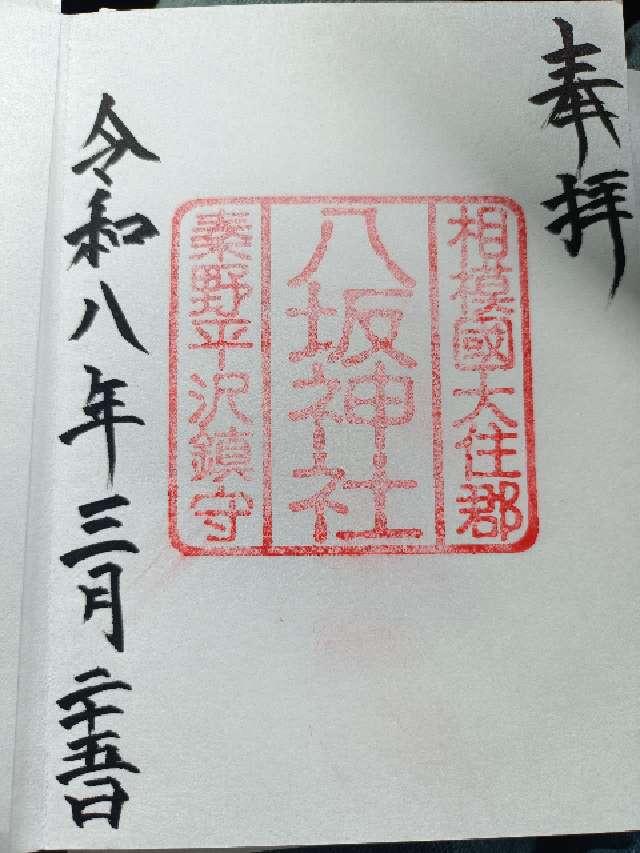 奉拝
相模國大住郡
八坂神社
秦野平沢鎮守
令和八年三月二十五日